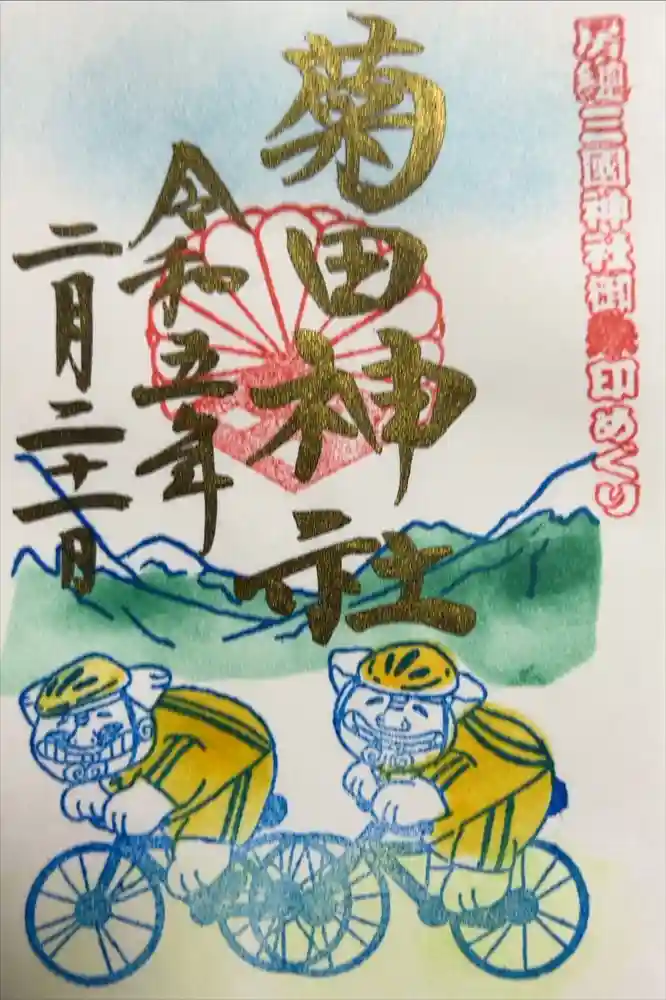 房総三國神社御朱印めぐり
菊田神社
令和五年
二月二十一日